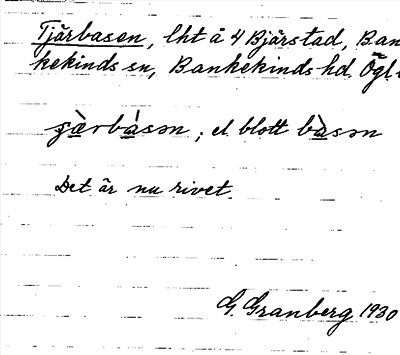 Tjärbasen, lht å 4 Bjärstad, Ban
kekinds sn, Bankekinds hd, Ögl
el. blott
Det är nu rivet.
G. Granberg 1930